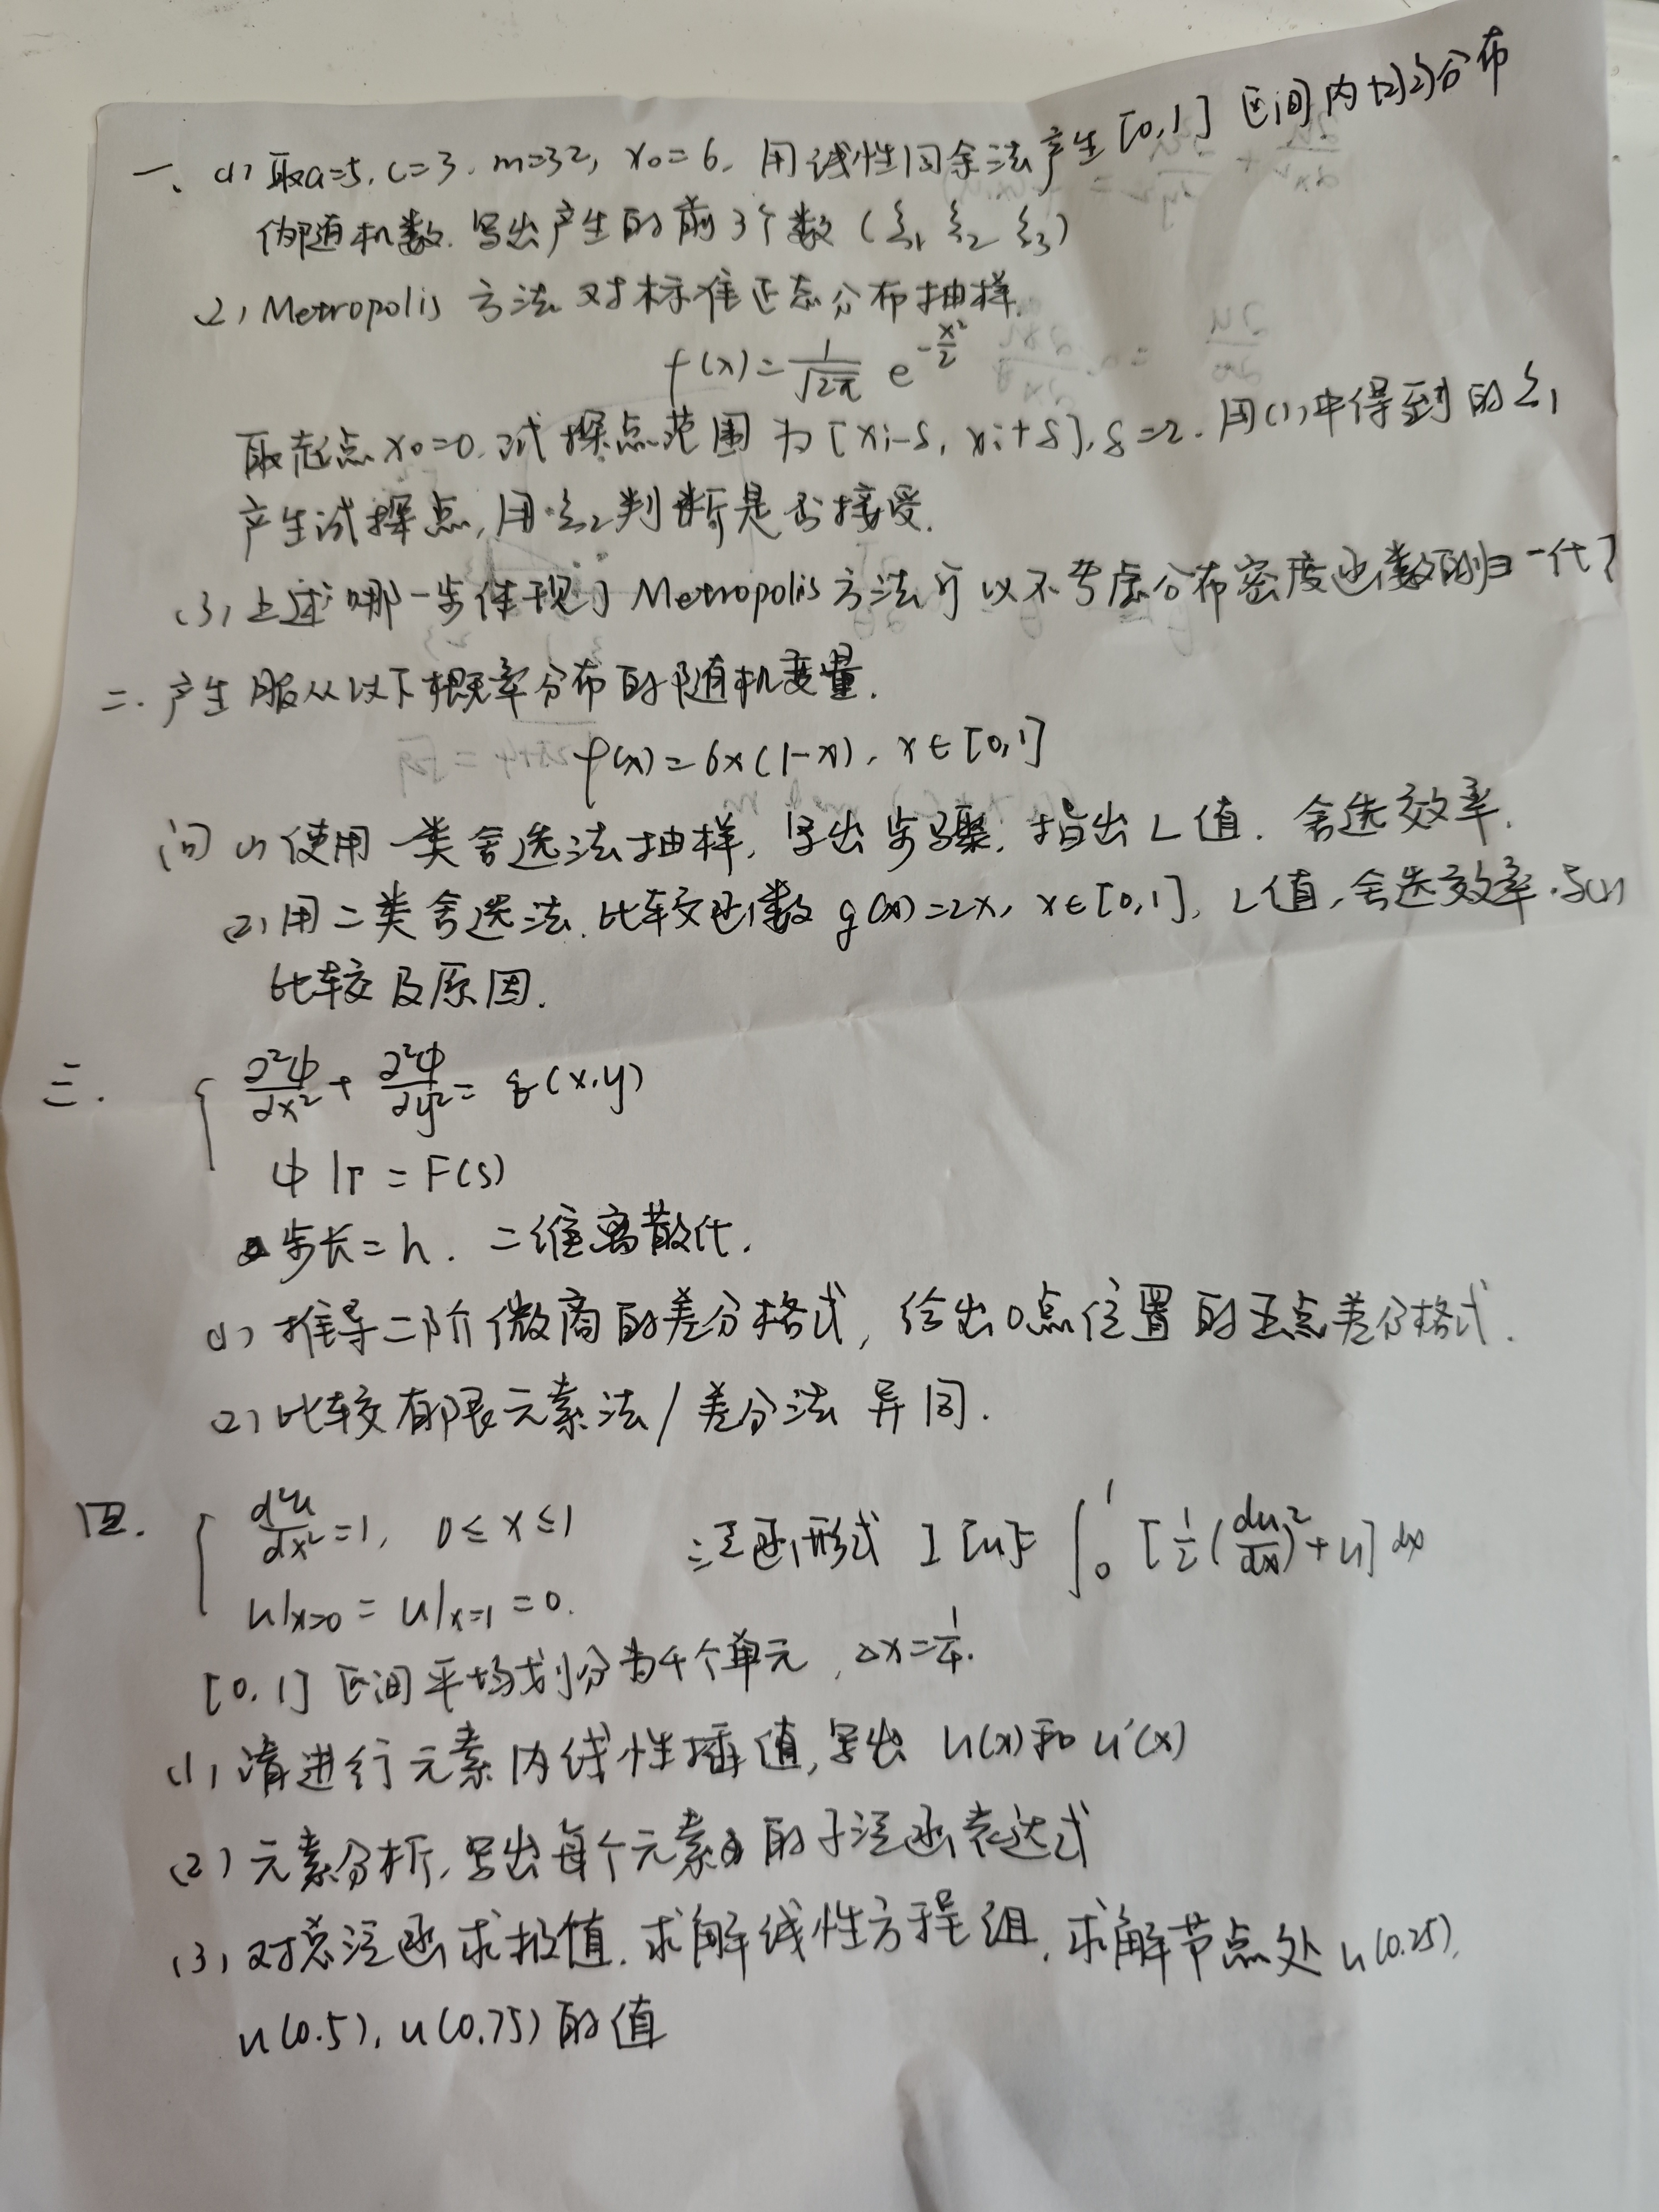 一、(1) 取a=5, c=3, m=32, x₀=6. 用线性同余法产生[0,1]区间内均匀分布
伪随机数. 写出产生的前3个数 (ξ₁ ξ₂ ξ₃)
(2) Metropolis 方法对标准正态分布抽样.
f(x)=1/√2π e^(-x²/2)
取起点x₀=0. 试探点范围为[xi-δ, xi+δ], δ=2. 用(1)中得到的ξ₁
产生试探点, 用ξ₂判断是否接受.
(3) 上述哪一步体现了Metropolis方法可以不考虑分布密度函数的归一化?
二. 产生服从以下概率分布的随机变量.
f(x)=6x(1-x), x∈[0,1]
问 (1) 使用一类舍选法抽样, 写出步骤, 指出L值. 舍选效率.
(2) 用二类舍选法. 比较函数g(x)=2x, x∈[0,1], L值, 舍选效率.与(1)
比较及原因.
三. { ∂²φ/∂x² + ∂²φ/∂y² = q(x,y)
φ|Γ = F(s)
步长=h. 二维离散化.
(1) 推导二阶微商的差分格式, 给出0点位置的五点差分格式.
(2) 比较有限元素法/差分法异同.
四. { d²u/dx²=1, 0≤x≤1 泛函形式 I[u]=∫₀¹[½(du/dx)²+u]dx
u|x=0 = u|x=1 =0.
[0,1]区间平均划分为4个单元, Δx=1/4.
(1) 请进行元素内线性插值, 写出 u(x)和u'(x)
(2) 元素分析, 写出每个元素的子泛函表达式
(3) 对总泛函求极值. 求解线性方程组. 求解节点处u(0.25),
u(0.5), u(0.75)的值